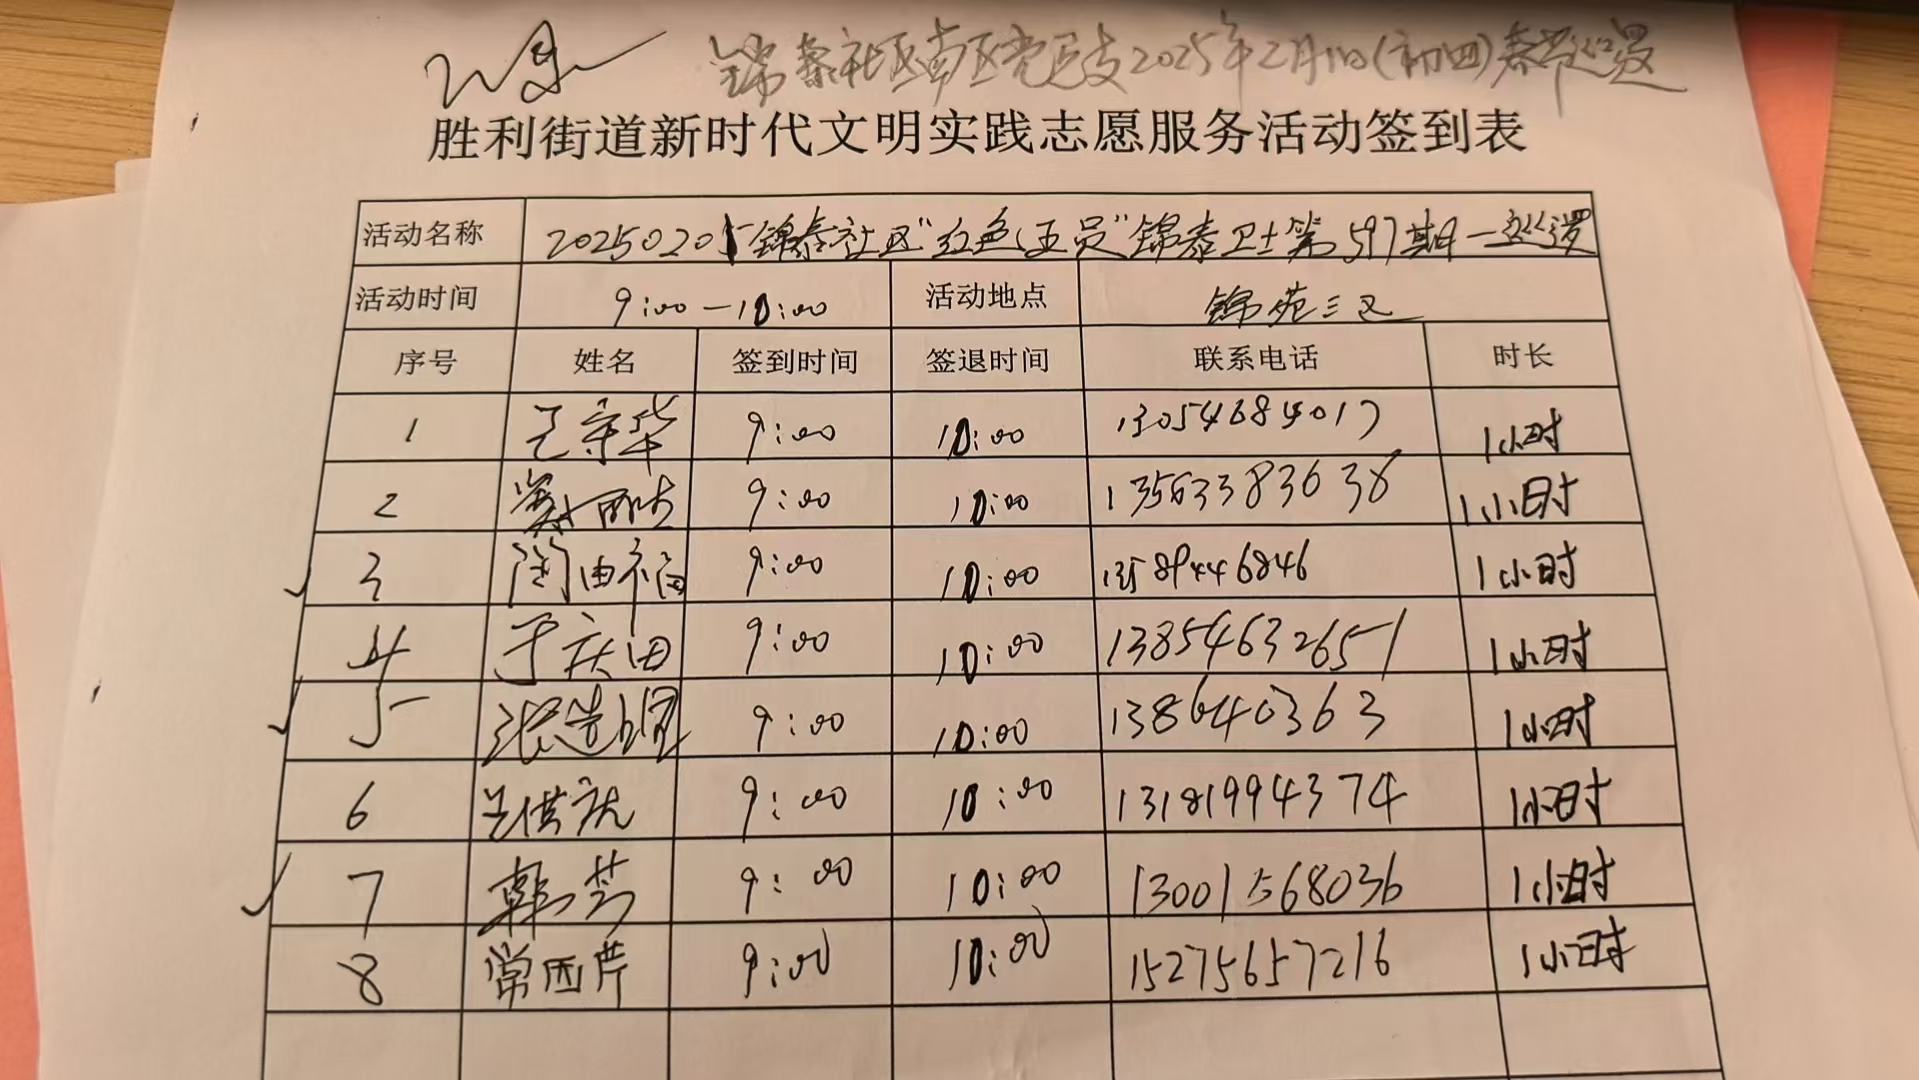 锦泰社区南区党总支2025年2月1日(初四)春节巡逻
胜利街道新时代文明实践志愿服务活动签到表
活动名称 20250201锦泰社区"红色网员"锦泰卫士第597期—巡逻
活动时间 9:00—10:00 活动地点 锦苑三区
序号 姓名 签到时间 签退时间 联系电话 时长
1 9:00 10:00 13054684017 1小时
2 9:00 10:00 13563383638 1小时
3 闵由福 9:00 10:00 13589446846 1小时
4 于庆田 9:00 10:00 13854632651 1小时
5 9:00 10:00 138640363 1小时
6 兰供航 9:00 10:00 13181994374 1小时
7 韩芳 9:00 10:00 13001568036 1小时
8 常西芹 9:00 10:00 15275657216 1小时